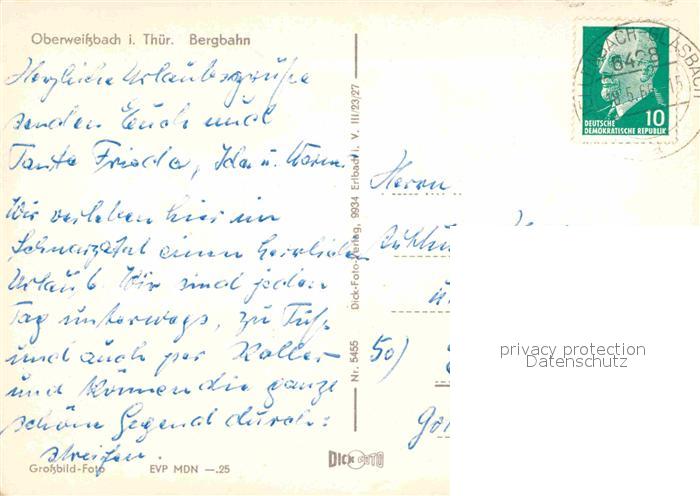 Oberweißbach i. Thür. Bergbahn
Herzliche Urlaubsgrüße
senden Euch und
Tante Frieda, Ida u.
Wir verleben hier im
Schwarzatal einen herrlichen
Urlaub. Wir sind jeden
Tag unterwegs, zu Fuß
und auch per Roller
und können die ganze
schöne Gegend durch-
streifen.
Großbild-Foto EVP MDN —.25
Nr. 5455 Dick-Foto-Verlag, 9934 Erlbach i. V. III/23/27
DICK FOTO
DEUTSCHE
DEMOKRATISCHE REPUBLIK
10
Herrn
50)
privacy protection
Datenschutz